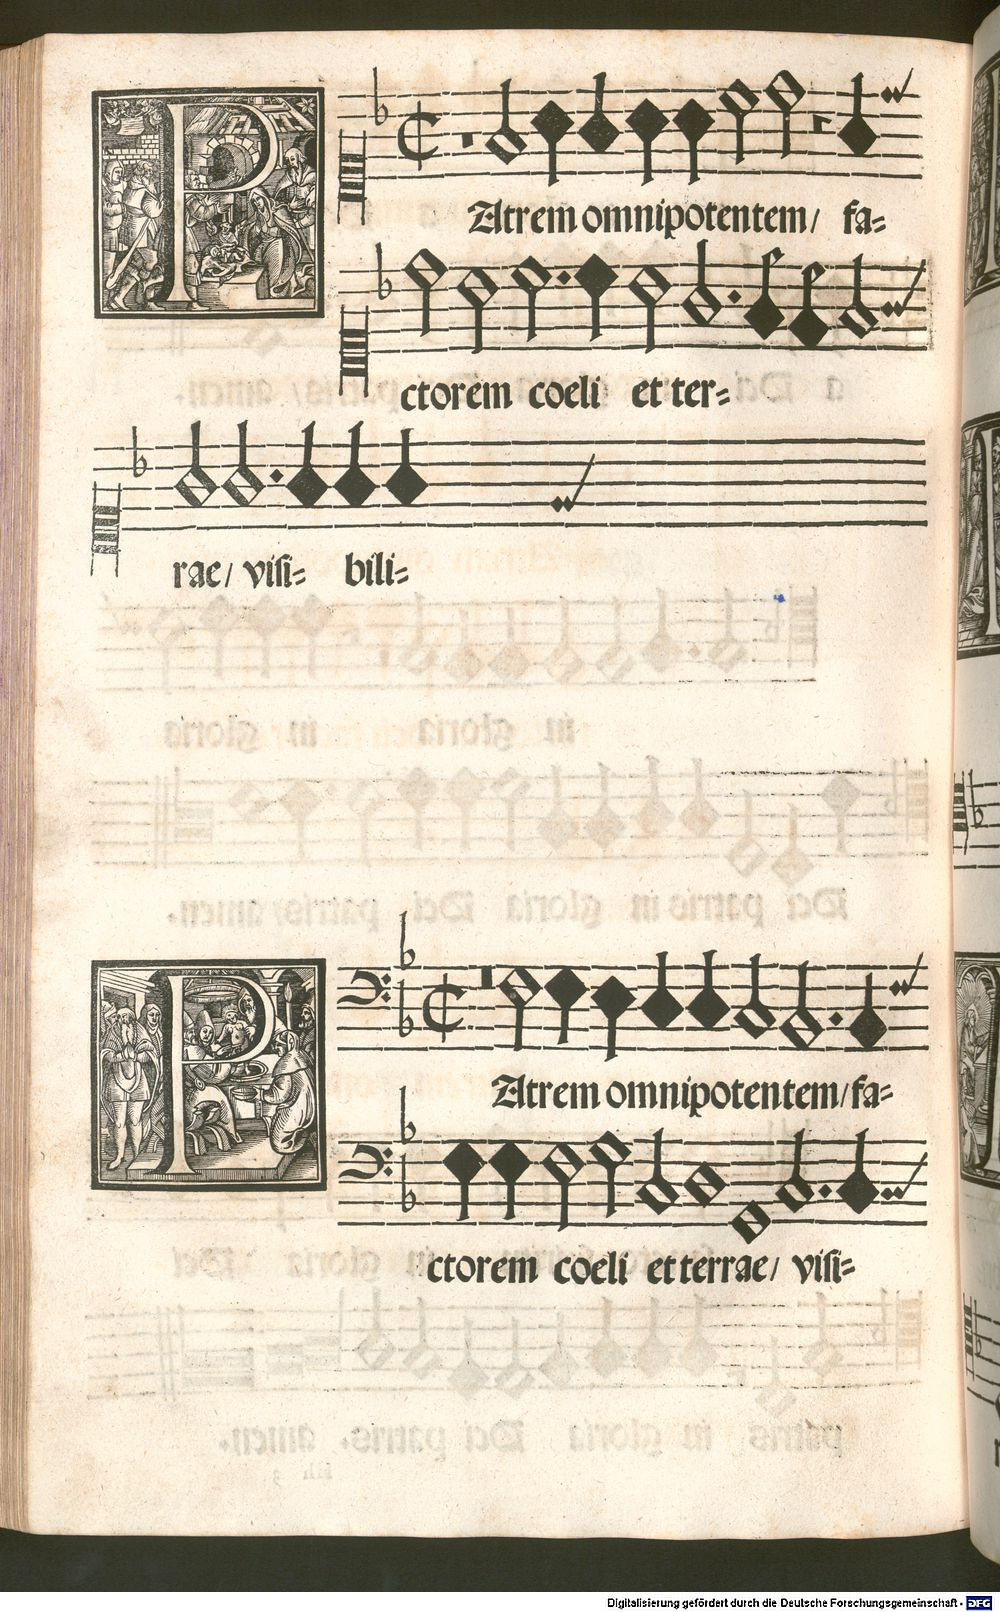 PAtrem omnipotentem/ fa=
ctorem coeli et ter=
rae/ visi= bili=
PAtrem omnipotentem/ fa=
ctorem coeli et terrae/ visi=
Digitalisierung gefördert durch die Deutsche Forschungsgemeinschaft - DFG